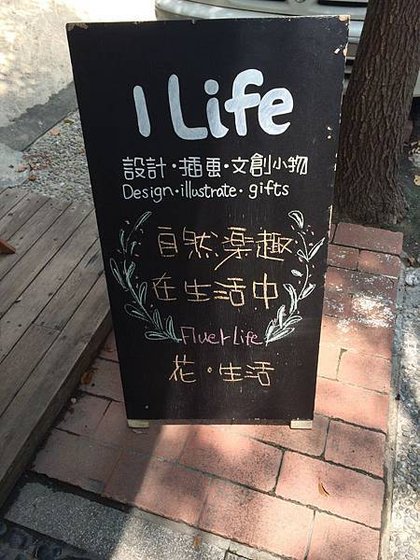 I Life
設計・插画・文創小物
Design・illustrate・gifts
自然楽趣
在生活中
Fluer Life
花・生活